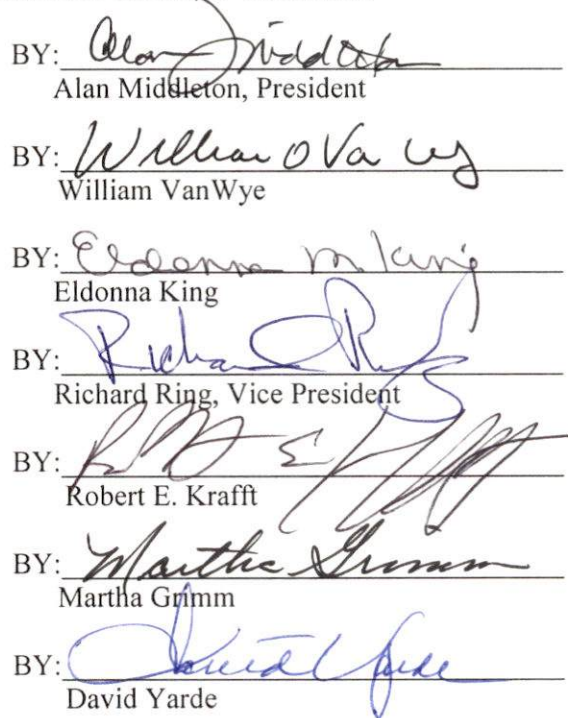 BY: Alan Middleton
Alan Middleton, President
BY: William O Van Wy
William VanWye
BY: Eldonna M. King
Eldonna King
BY: Richard Ring
Richard Ring, Vice President
BY: Robert E. Krafft
Robert E. Krafft
BY: Martha Grimm
Martha Grimm
BY: David Yarde
David Yarde